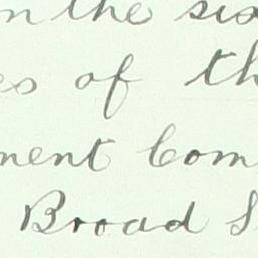 n the six
es of th
ment Com
Broad S